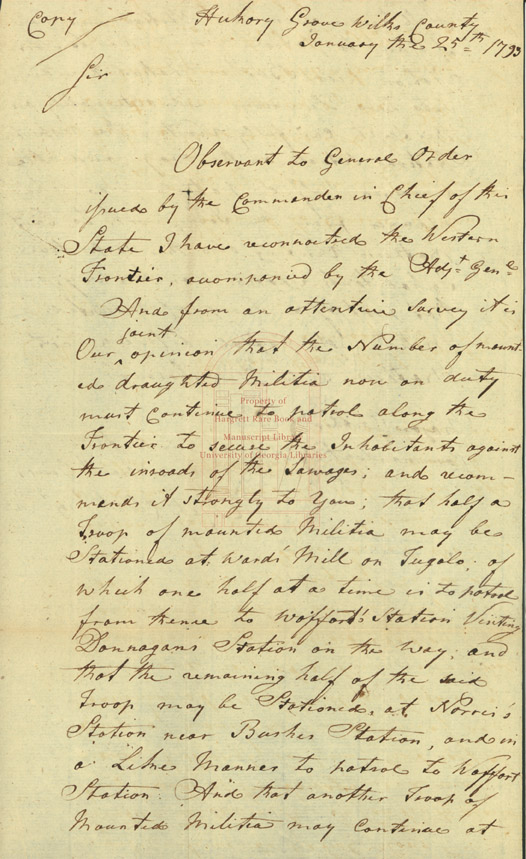 Copy
Hickory Grove Wilks County
January the 25th 1793
Sir
Observant to General Order
issued by the Commander in Chief of this
State I have reconnoitred the Western
Frontier, accompanied by the Adjt Genl
And from an attentive Survey it is
Our joint opinion that the Number of mount
ed draughted Militia now on duty
must Continue to patrol along the
Frontier to secure the Inhabitants against
the inroads of the Savages; and recom-
mends it strongly to You; that half a
Troop of mounted Militia may be
Stationed at Ward's Mill on Tugalo; of
which one half at a time is to patrol
from thence to Wofford's Station Visiting
Dunnagan's Station on the Way; and
that the remaining half of the said
Troop may be Stationed at Norris's
Station near Bushes Station, and in
a Like Manner to patrol to Wofford
Station. And that another Troop of
Mounted Militia may Continue at
Property of
Hargrett Rare Book and
Manuscript Library
University of Georgia Libraries